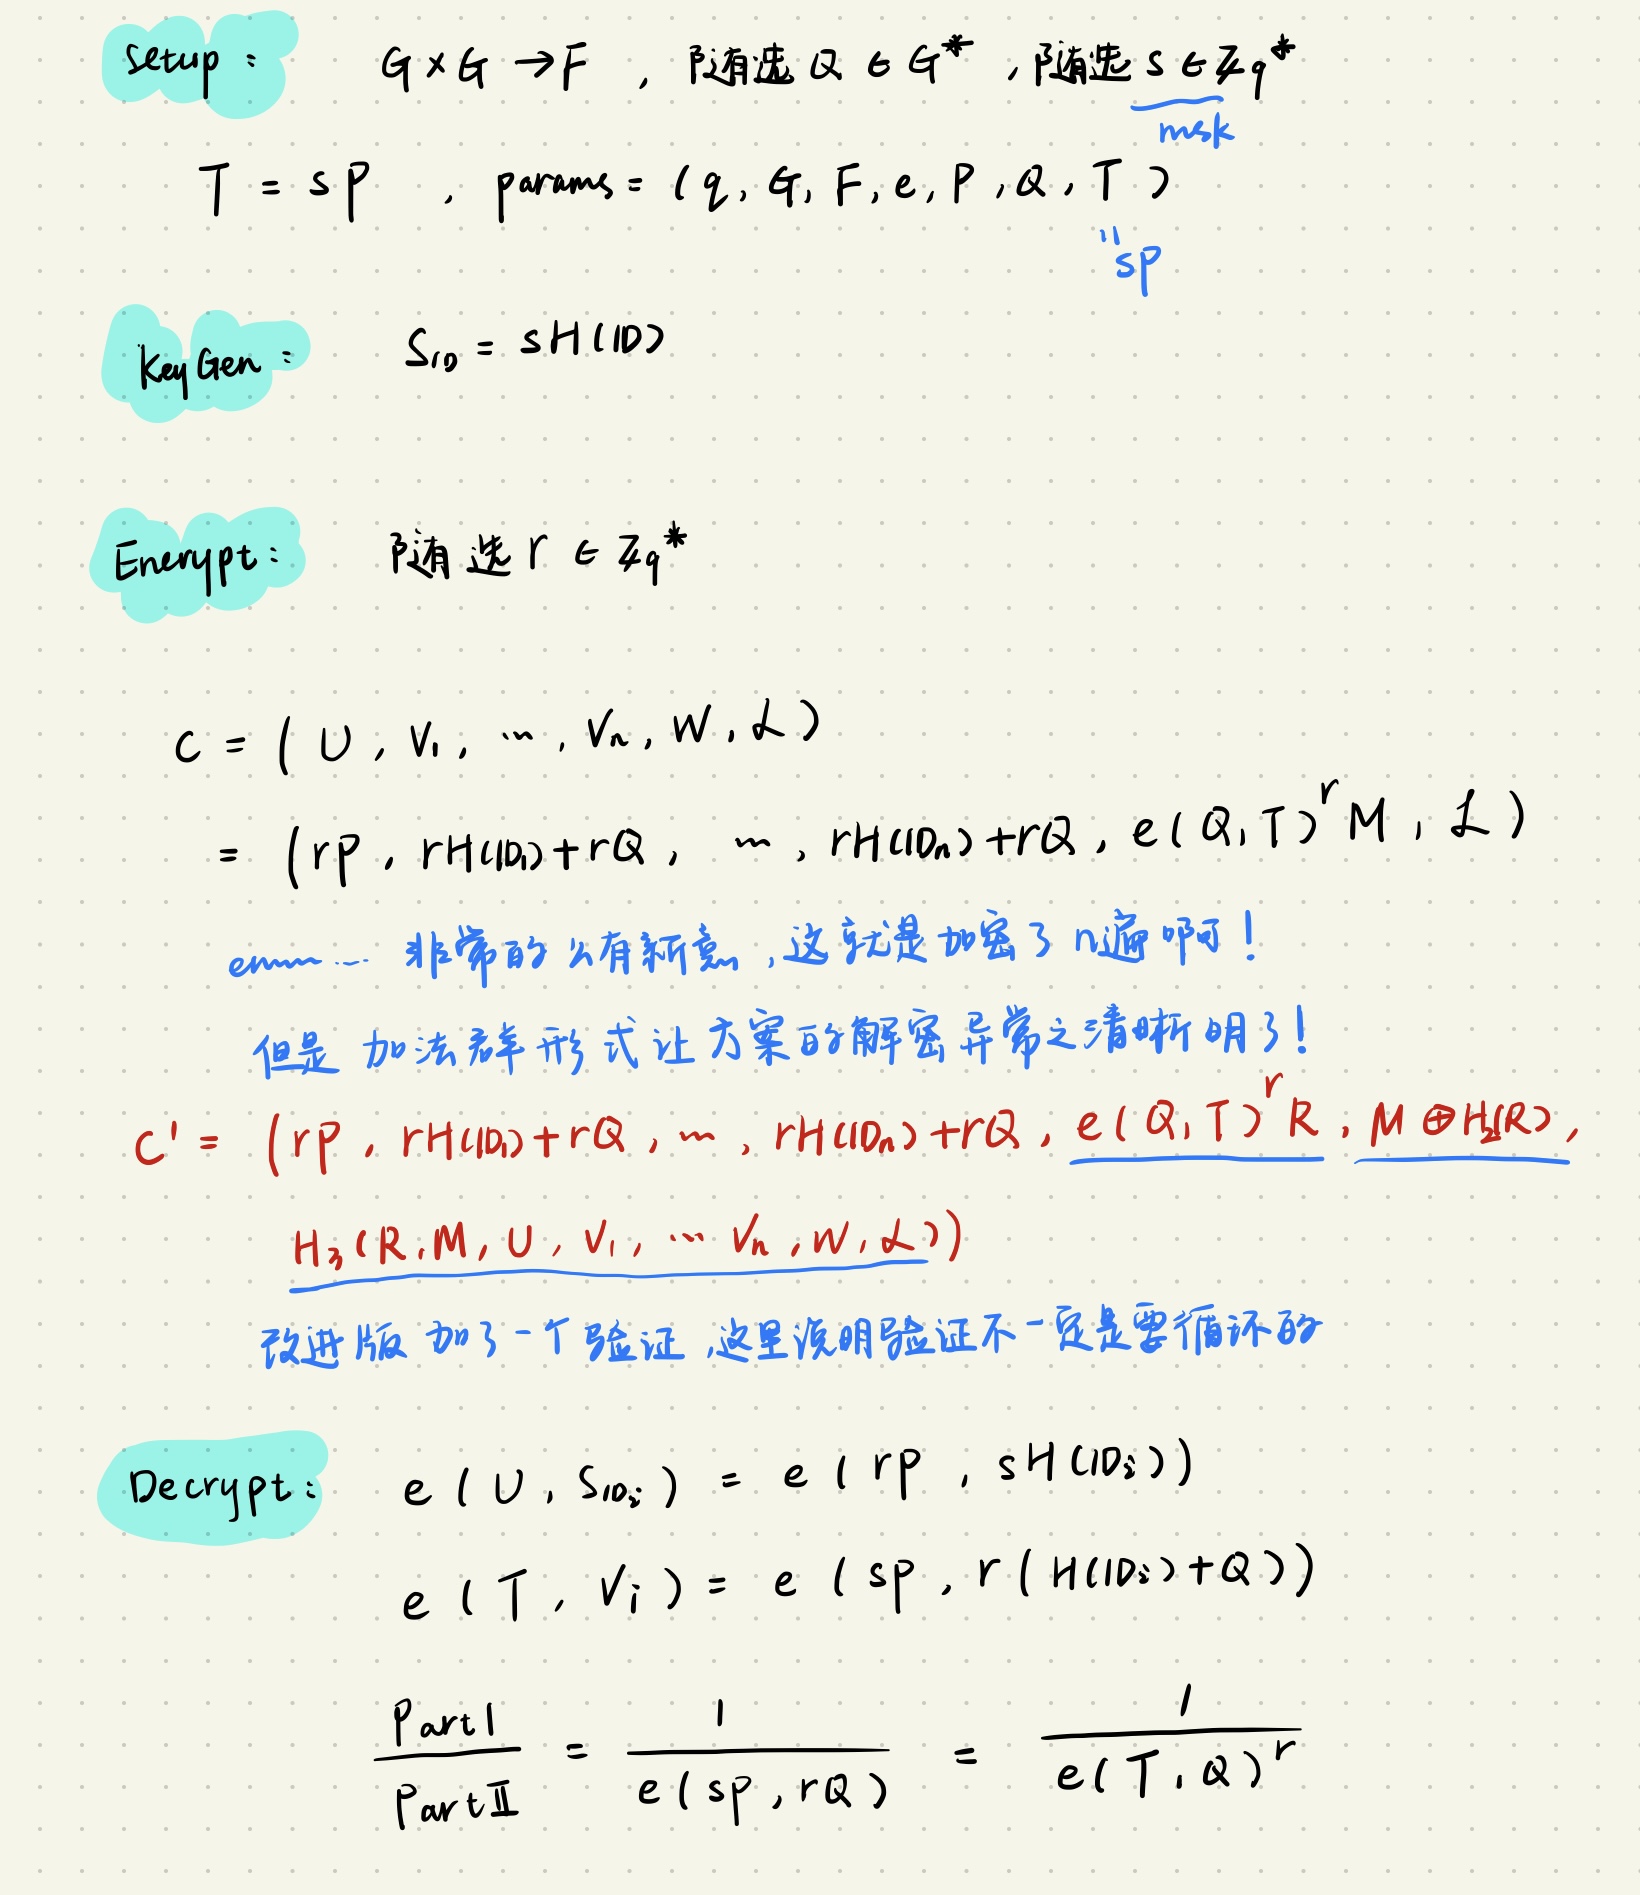 Setup: G×G→F , 随选 Q ∈ G* , 随选 s ∈ Zq*
msk
T = sP , params = (q, G, F, e, P, Q, T)
"sP
KeyGen: S_ID = sH(ID)
Enerypt: 随选 r ∈ Zq*
C = (U, V₁, …, Vₙ, W, L)
= (rP, rH(ID₁)+rQ, …, rH(IDₙ)+rQ, e(Q,T)^r M, L)
emm… 非常的公有新意,这就是加密了n遍啊!
但是加法群形式让方案的解密异常之清晰明了!
C' = (rP, rH(ID₁)+rQ, …, rH(IDₙ)+rQ, e(Q,T)^r R, M⊕H₂(R),
H₃(R,M,U,V₁,…Vₙ,W,L))
改进版加了一个验证,这里说明验证不一定是要循环的
Decrypt: e(U, S_IDᵢ) = e(rP, sH(IDᵢ))
e(T, Vᵢ) = e(sP, r(H(IDᵢ)+Q))
Part I / Part II = 1 / e(sP, rQ) = 1 / e(T, Q)^r